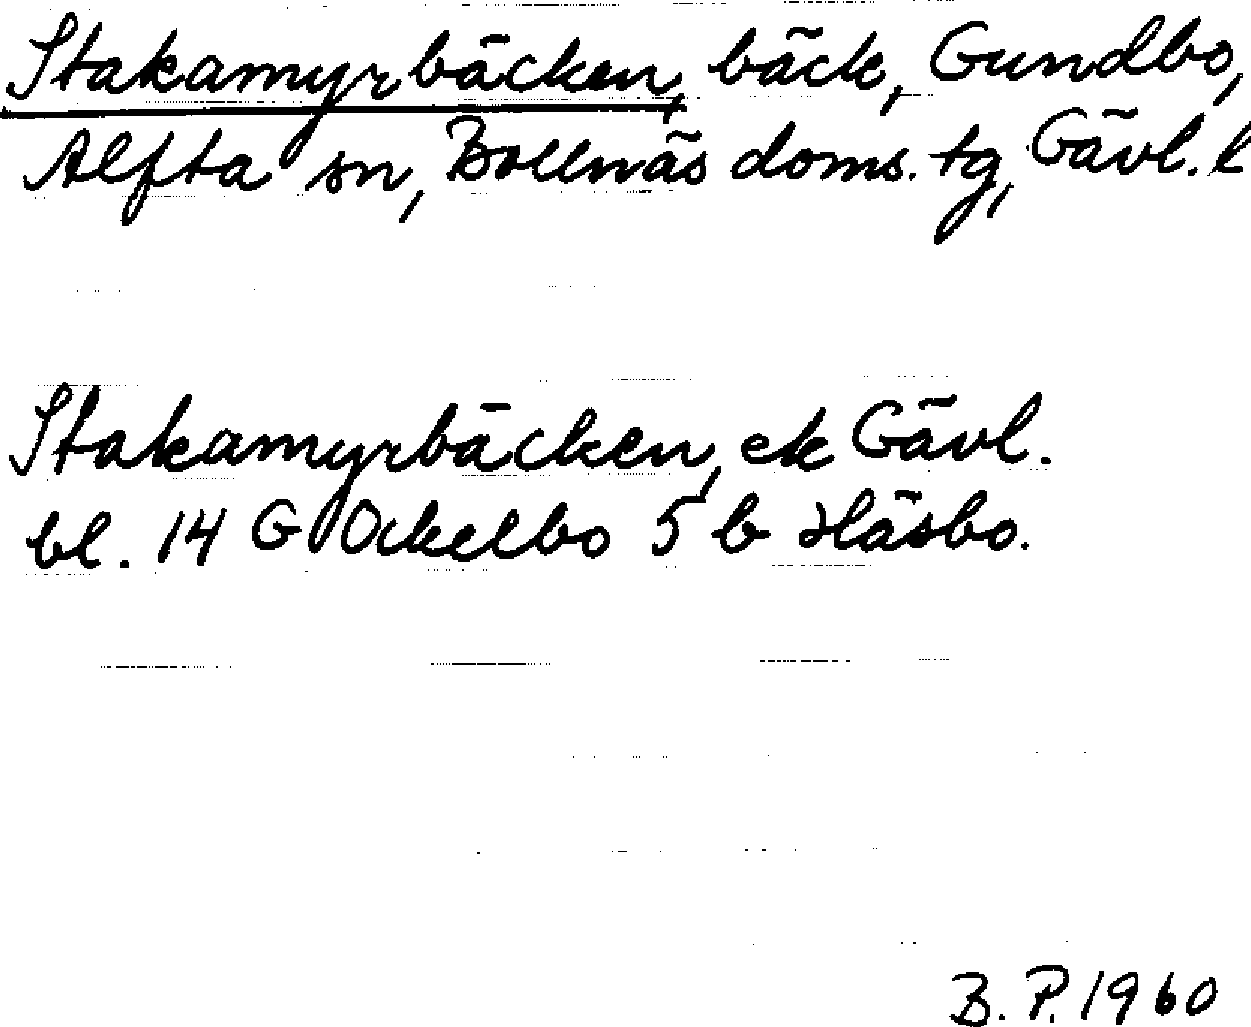 Stakamyrbäcken, bäck, Gundbo,
Alfta sn, Bollnäs doms. tg, Gävl. l
Stakamyrbäcken, ek Gävl.
bl. 14 G Ockelbo 5 b Häsbo.
B. P. 1960